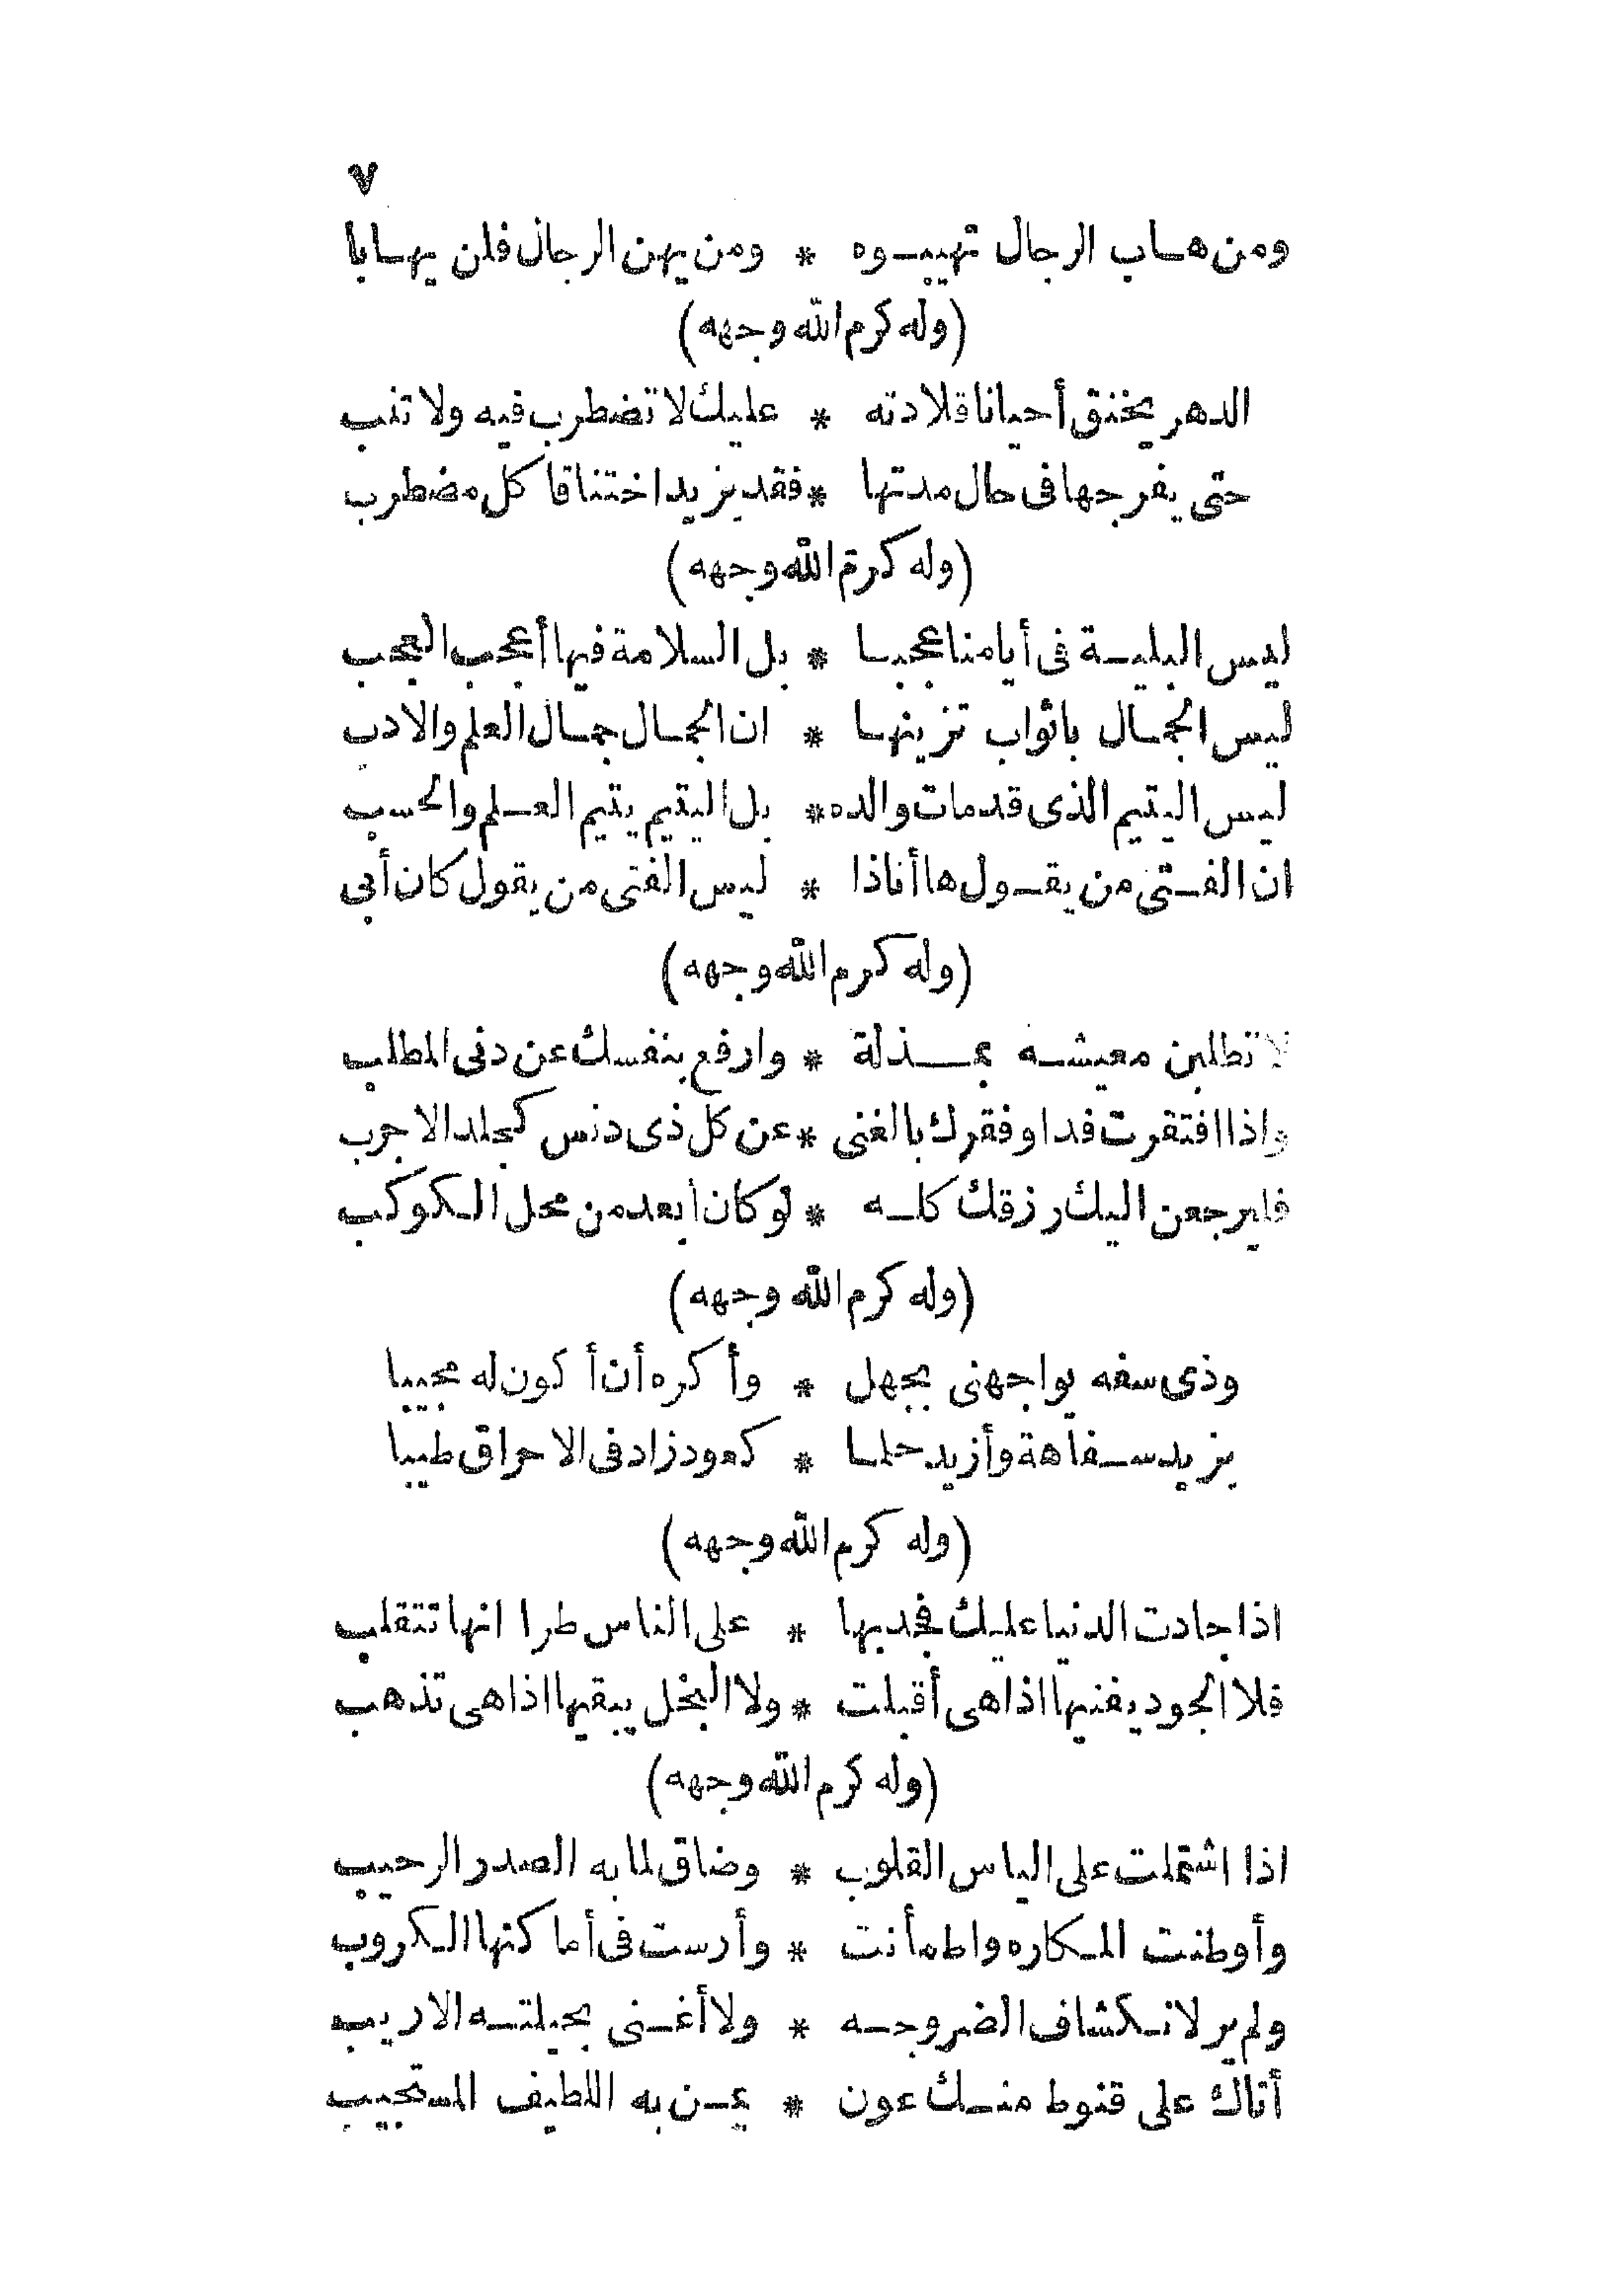 ٧
ومن هاب الرجال تهيبوه * ومن يهن الرجال فلن يهابا
(وله كرم الله وجهه)
الدهر يخنق أحيانا قلادته * عليك لا تضطرب فيه ولا تثب
حتى يفرجها فى حال مدتها * فقد يزيد اختناقا كل مضطرب
(وله كرم الله وجهه)
ليس البلية فى أيامنا عجبا * بل السلامة فيها أعجب العجب
ليس الجمال باثواب تزينها * ان الجمال جمال العلم والادب
ليس اليتيم الذى قد مات والده * بل اليتيم يتيم العلم والحسب
ان الفتى من يقول ها أناذا * ليس الفتى من يقول كان أبى
(وله كرم الله وجهه)
لا تطلبن معيشه بمذلة * وارفع بنفسك عن دنى المطلب
واذا افتقرت فداو فقرك بالغنى * عن كل ذى دنس كجلد الاجرب
فليرجعن اليك رزقك كله * لو كان أبعد من محل الكوكب
(وله كرم الله وجهه)
وذى سفه يواجهنى بجهل * وأكره أن أكون له مجيبا
يزيد سفاهة وأزيد حلما * كعود زاد فى الاحراق طيبا
(وله كرم الله وجهه)
اذا جادت الدنيا عليك فجد بها * على الناس طرا انها تتقلب
فلا الجود يفنيها اذا هى أقبلت * ولا البخل يبقيها اذا هى تذهب
(وله كرم الله وجهه)
اذا اشتملت على الياس القلوب * وضاق لما به الصدر الرحيب
وأوطنت المكاره واطمأنت * وأرست فى أماكنها الكروب
ولم ير لانكشاف الضر وجه * ولا أغنى بحيلته الاريب
أتاك على قنوط منك عون * يمن به اللطيف المستجيب